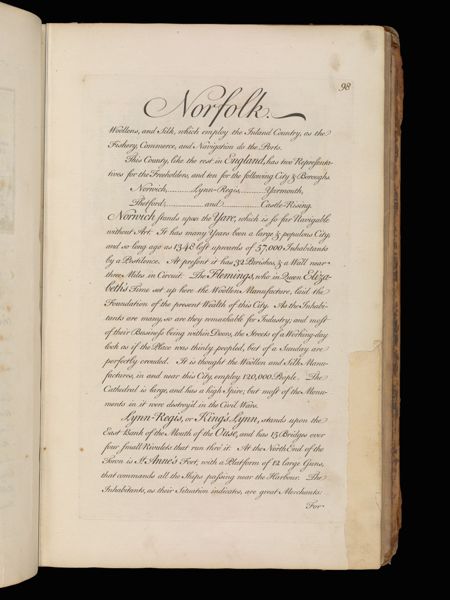 98
Norfolk
Woollens, and Silk, which employ the Inland Country, as the
Fishery, Commerce, and Navigation do the Ports.
This County, like the rest in England, has two Representa-
tives for the Freeholders, and ten for the following City & Boroughs
Norwich,............Lynn-Regis,............Yarmouth,
Thetford,............and............Castle-Rising.
Norwich stands upon the Yare, which is so far Navigable
without Art. It has many Years been a large & populous City,
and so long ago as 1348 lost upwards of 57,000 Inhabitants
by a Pestilence. At present it has 32 Parishes, & a Wall near
three Miles in Circuit. The Flemings, who in Queen Eliza-
beth's Time set up here the Woollen Manufacture, laid the
Foundation of the present Wealth of this City. As the Inhabi-
tants are many, so are they remarkable for Industry; and most
of their Business being within Doors, the Streets of a Working-day
look as if the Place was thinly peopled, but of a Sunday are
perfectly crouded. It is thought the Woollen and Silk Manu-
factures, in and near this City, employ 120,000 People. The
Cathedral is large, and has a high Spire; but most of the Monu-
ments in it were destroy'd in the Civil Wars.
Lynn-Regis, or King's Lynn, stands upon the
East Bank of the Mouth of the Ouse, and has 15 Bridges over
four small Rivulets that run thro' it. At the North End of the
Town is St. Anne's Fort, with a Platform of 12 large Guns,
that commands all the Ships passing near the Harbour. The
Inhabitants, as their Situation indicates, are great Merchants:
For